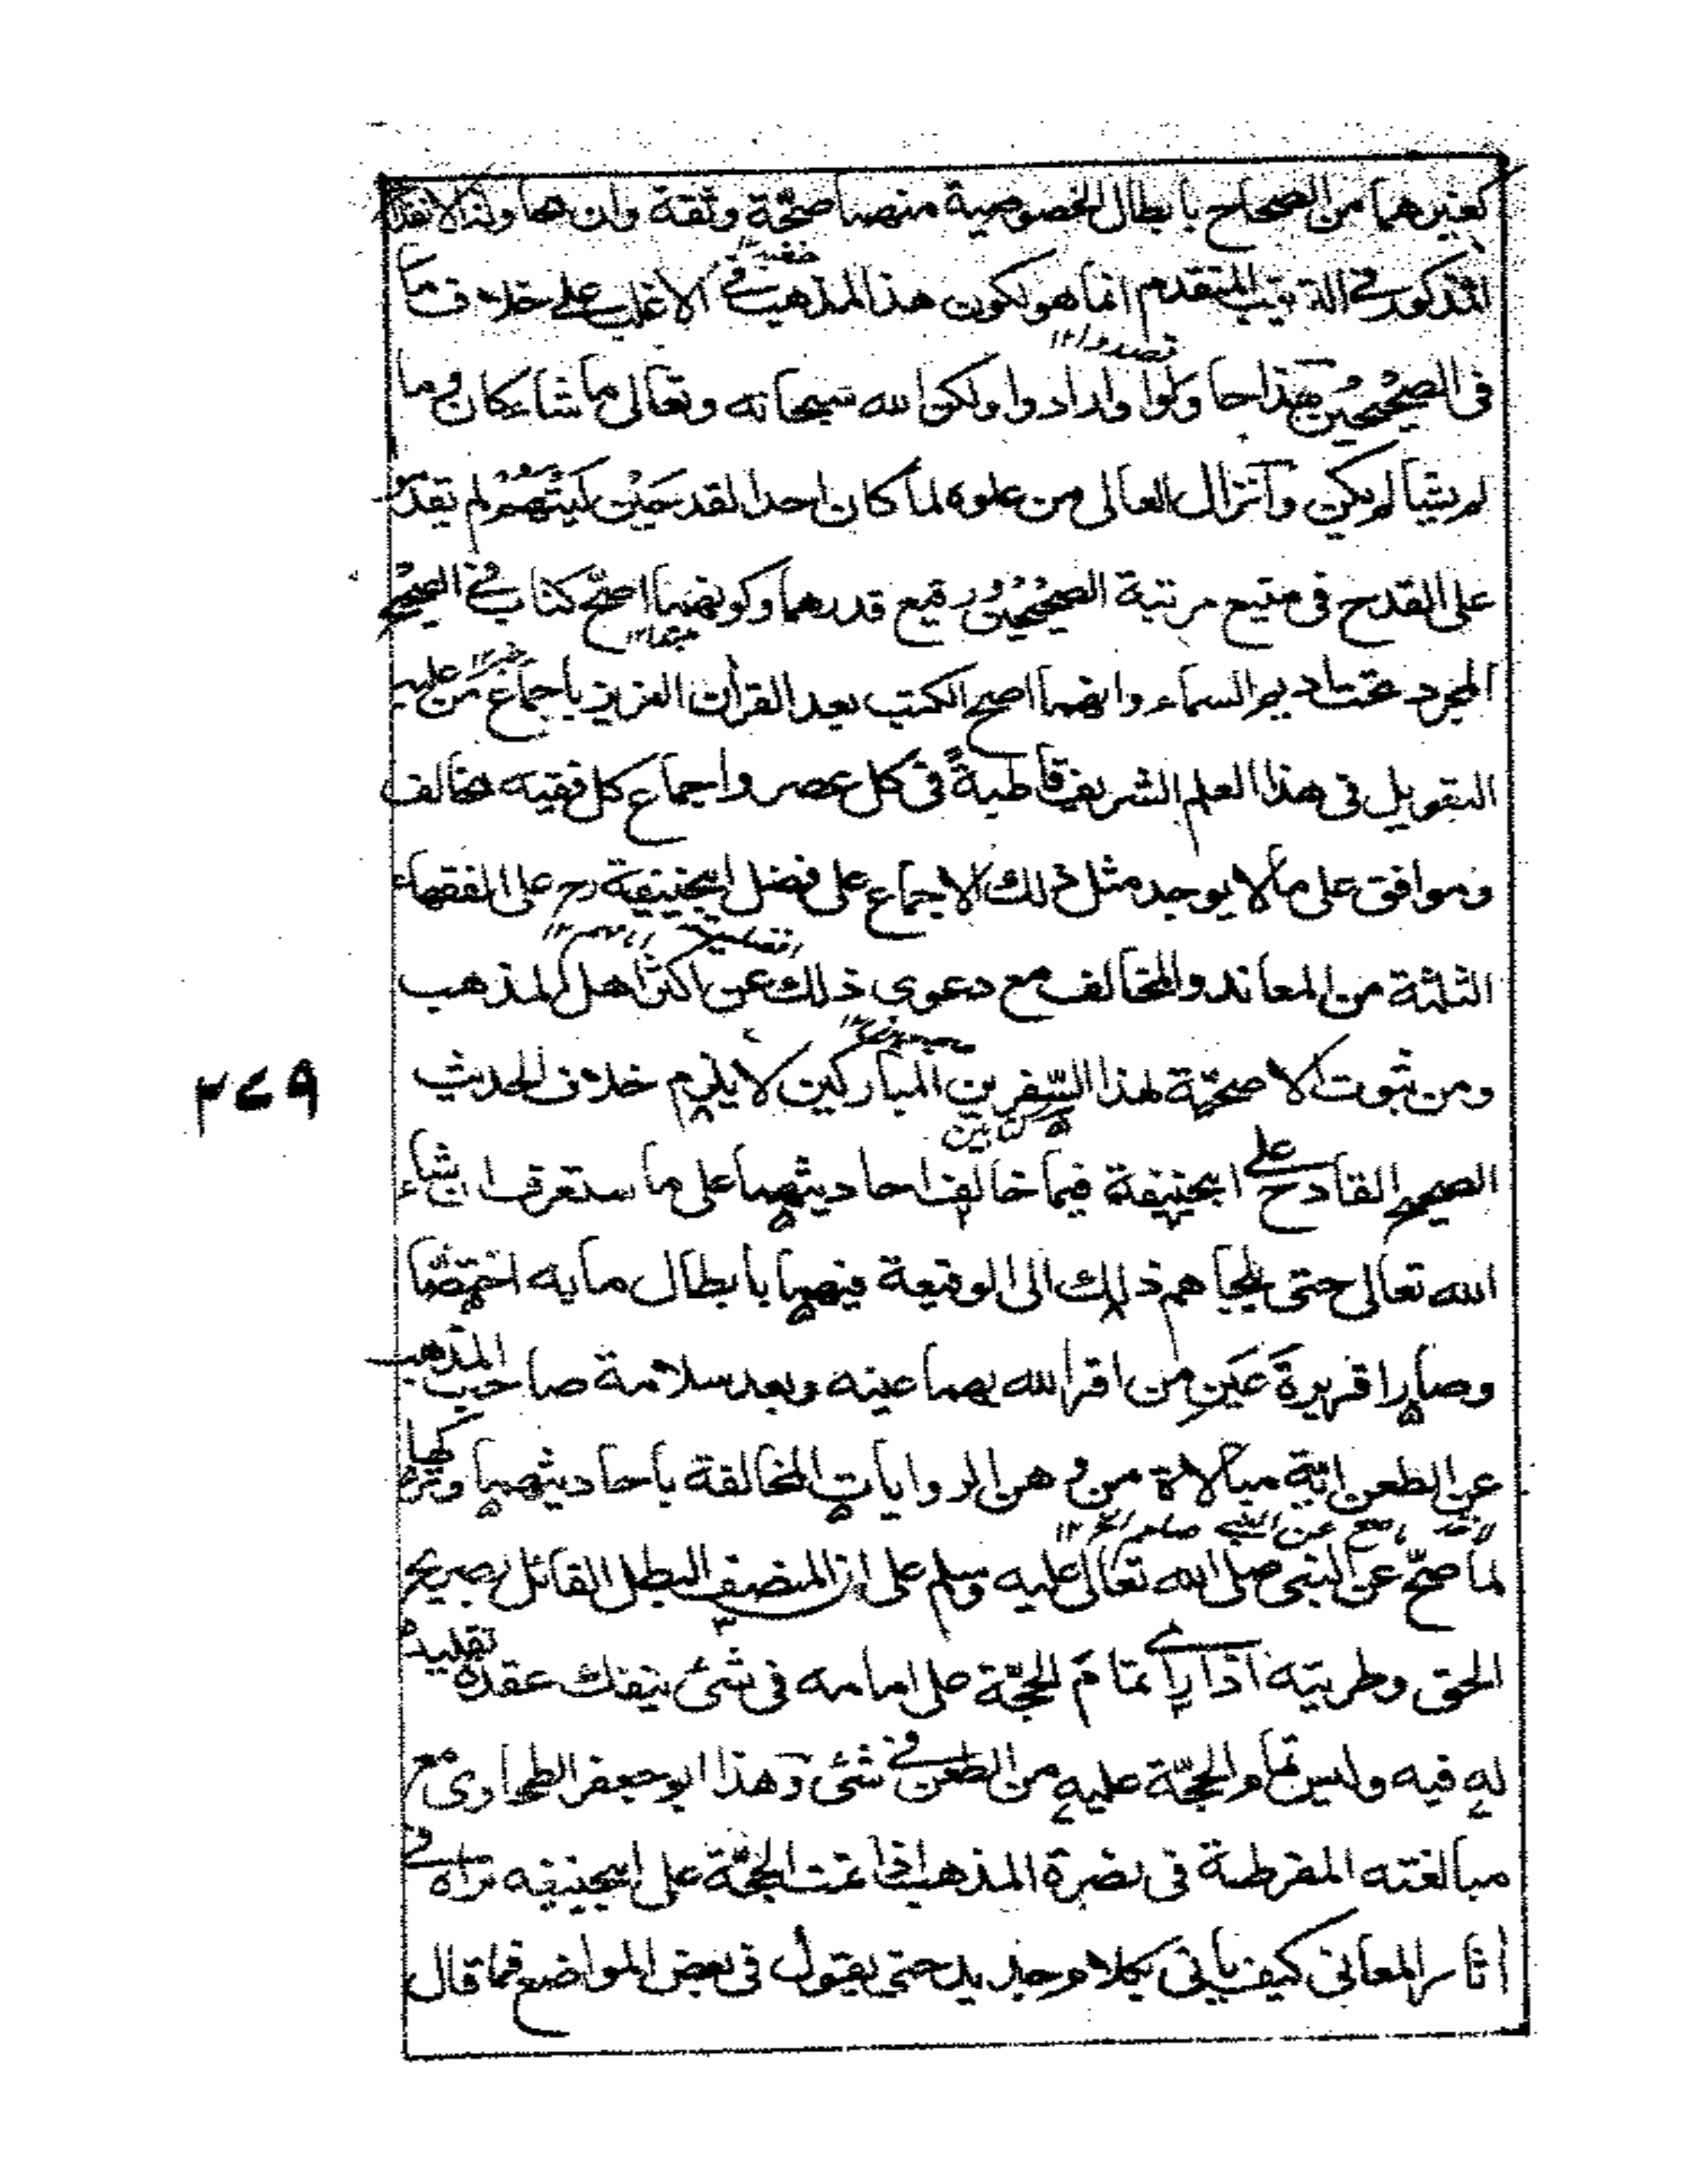 كغيرهما من الصحاح بابطال الخصوصية منهما صحّة وثقة وان
المذكور في المتقدم انما هو لكون هذا المذهب في الاغلب على خلاف ما
حنفية ١٢
في الصحيحين حاولوا وارادوا ولكن الله سبحانه وتعالى ما شاء كان وما
قصدوا ١٢
لم يشا لم يكن وآنزال العالى من علوه لما كان احد القدحين لم يقد
على القدح في منيع مرتبة الصحيحين ورفيع قدرهما وكونهما اصحّ كتاب في الصحيح
المجرد تحت اديم السماء وانهما اصح الكتب بعد القرأن العزيز باجماع من عليه
مبتدا ١٢
خبر ١٢
التعويل في هذا العلم الشريف قاطبةً في كل عصر واجماع كل فقيه مخالف
وموافق على ما لا يوجد مثل ذلك الاجماع على فضل ابيحنيفة رح على الفقهاء
الثلثة من المعاند والمخالف مع دعوى ذلك عن اكثر اهل المذهب
ومن ثبوت الاصحّية لهذا السّفرين المباركين لا يلزم خلاف الحديث
صحيحين ١٢
كتابين
الصحيح القادح على ابيحنيفة فيما خالف احاديثهما على ما ستعرف ان شاء
الله تعالى حتى يلجاهم ذلك الى الوقيعة فيهما بابطال ما به اختصّا
وصارا قريرةَ عَينِ من اقر الله بهما عينه وبعد سلامة صاحب المذهب
عن الطعن اية مبالاة من وهن الروايات المخالفة باحاديثهما وتركها
لما صحّ عن النبي صلى الله تعالى عليه وسلم على ان المنصف البطل القائل بصريح
الحق وطريته اذا رأى تمامَ الحجّة على امامه في شئ ينفك عقدة تقليده
له فيه وليس تمام الحجّة عليه من الطعن في شئ وهذا ابو جعفر الطحاوى مع
مبالغته المفرطة في نصرة المذهب اذا تمت الحجّة على ابيحنيفه تراه في
اثار المعانى كيف ياتى بكلام جديد حتى يقول في بعض المواضع فما قال
٢٧٩